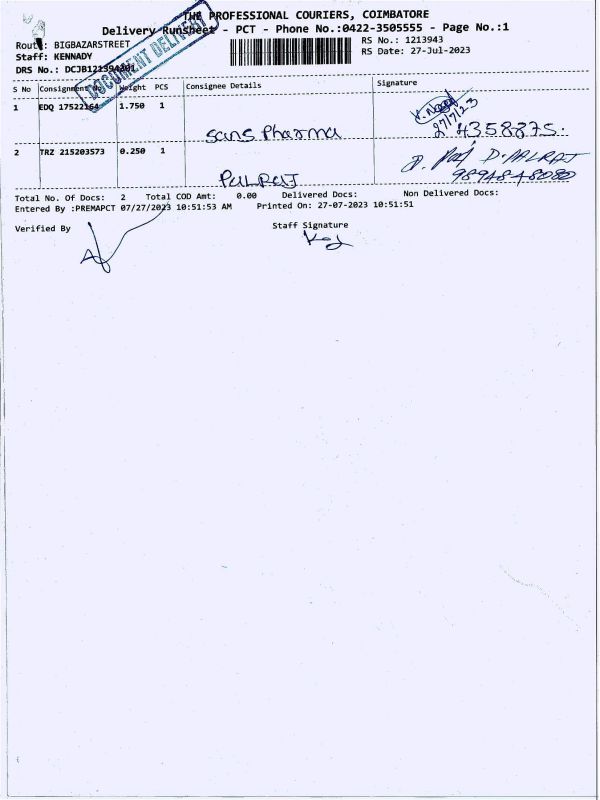 THE PROFESSIONAL COURIERS, COIMBATORE
Delivery Runsheet - PCT - Phone No.:0422-3505555 - Page No.:1
Route: BIGBAZARSTREET
RS No.: 1213943
Staff: KENNADY
RS Date: 27-Jul-2023
DRS No.: DCJB121394301
DOCUMENT DELIVERY
S No Consignment No Weight PCS Consignee Details Signature
1 EDQ 17522164 1.750 1
27/7/23
Sans Pharma
4358875.
2 TRZ 215203573 0.250 1
D. PALRAJ
PALRAJ
9894848080
Total No. Of Docs: 2 Total COD Amt: 0.00 Delivered Docs: Non Delivered Docs:
Entered By :PREMAPCT 07/27/2023 10:51:53 AM Printed On: 27-07-2023 10:51:51
Verified By
Staff Signature